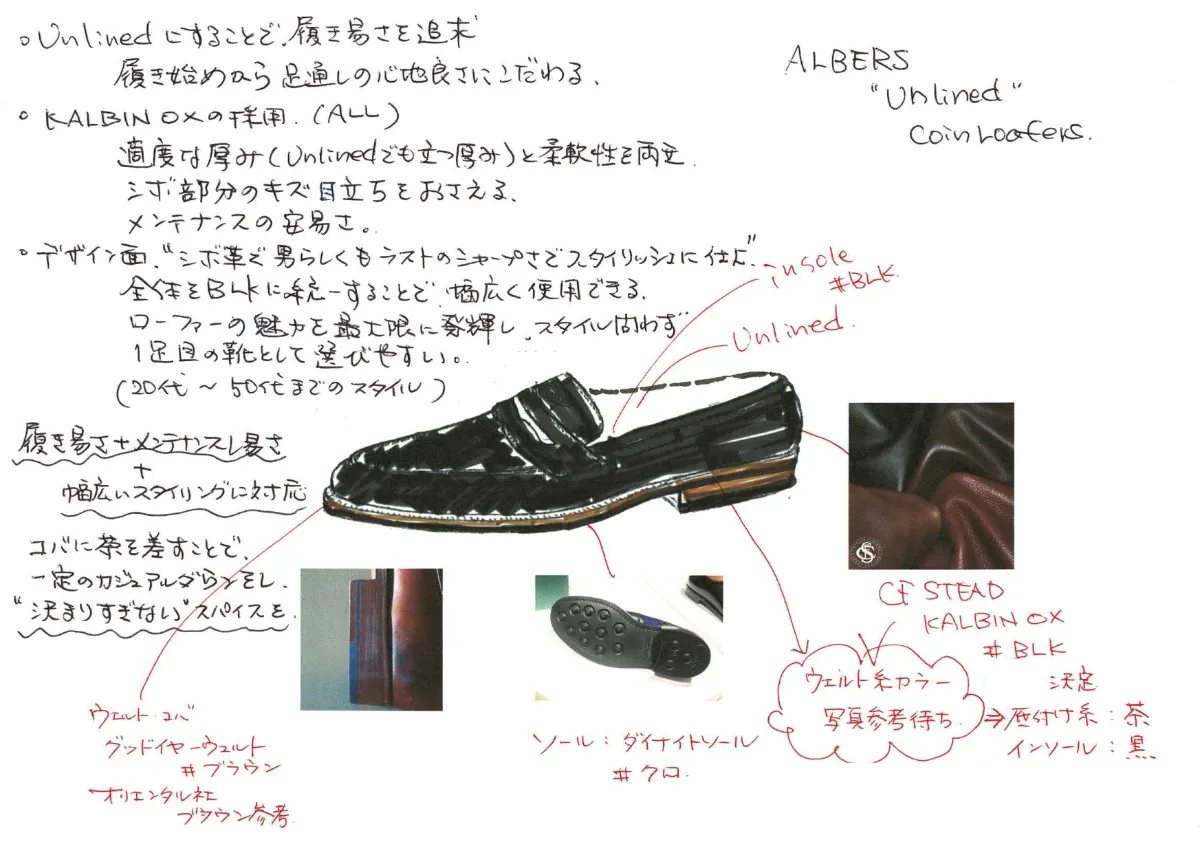 ○Unlinedにすることで、履き易さを追求
履き始めから足通しの心地良さにこだわる、
○ KALBIN OXの採用.(ALL)
適度な厚み(Unlinedでも立つ厚み)と柔軟性を両立.
シボ部分のキズ目立ちをおさえる、
メンテナンスの安易さ。
○デザイン面、"シボ革で男らしくもラストのシャープさでスタイリッシュに仕上"
全体をBLKに統一することで、幅広く使用できる、
ローファーの魅力を最大限に発揮し、スタイル問わず
1足目の靴として選びやすい。
(20代～50代までのスタイル)
ALBERS
"Unlined"
coin Loafers.
insole
#BLK.
Unlined.
履き易さ+メンテナンスし易さ
+
幅広いスタイリングに対応
コバに茶を差すことで、
一定のカジュアルダウンをし、
"決まりすぎない"スパイスを.
CF STEAD
KALBIN OX
#BLK
ウェルト・コバ
グッドイヤーウェルト
#ブラウン
オリエンタル社
ブラウン参考.
ソール:ダイナイトソール
#クロ.
ウェルト糸カラー
写真参考待ち
決定
⇒底付け糸:茶
インソール:黒